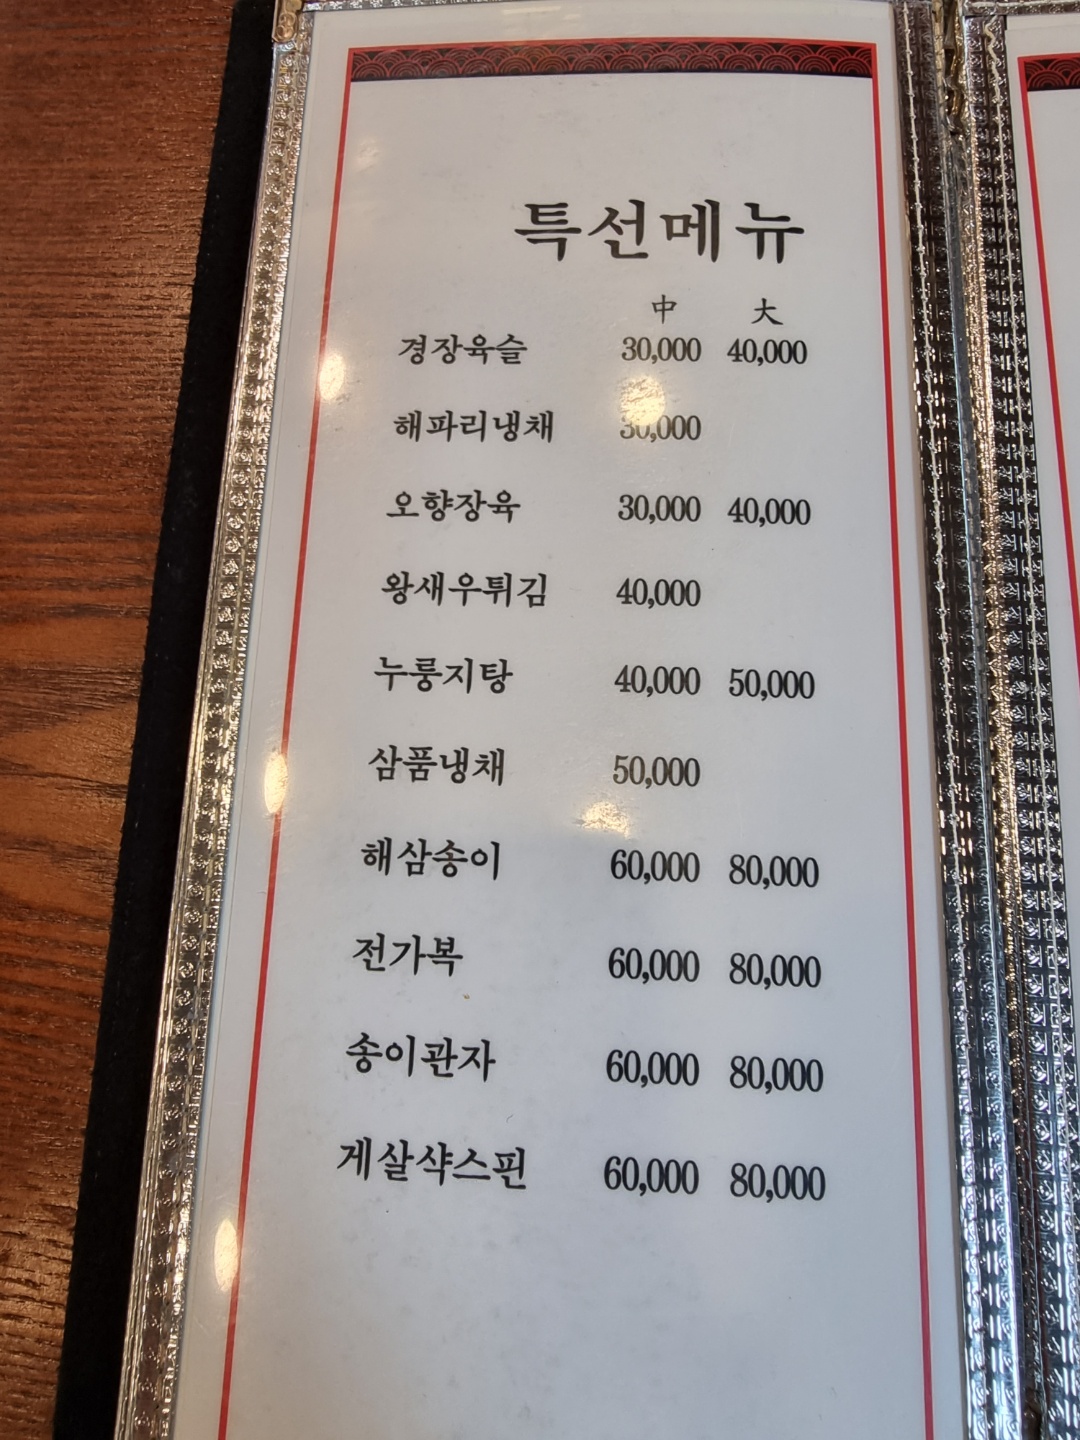 특선메뉴
中 大
경장육슬 30,000 40,000
해파리냉채 30,000
오향장육 30,000 40,000
왕새우튀김 40,000
누룽지탕 40,000 50,000
삼품냉채 50,000
해삼송이 60,000 80,000
전가복 60,000 80,000
송이관자 60,000 80,000
게살샥스핀 60,000 80,000